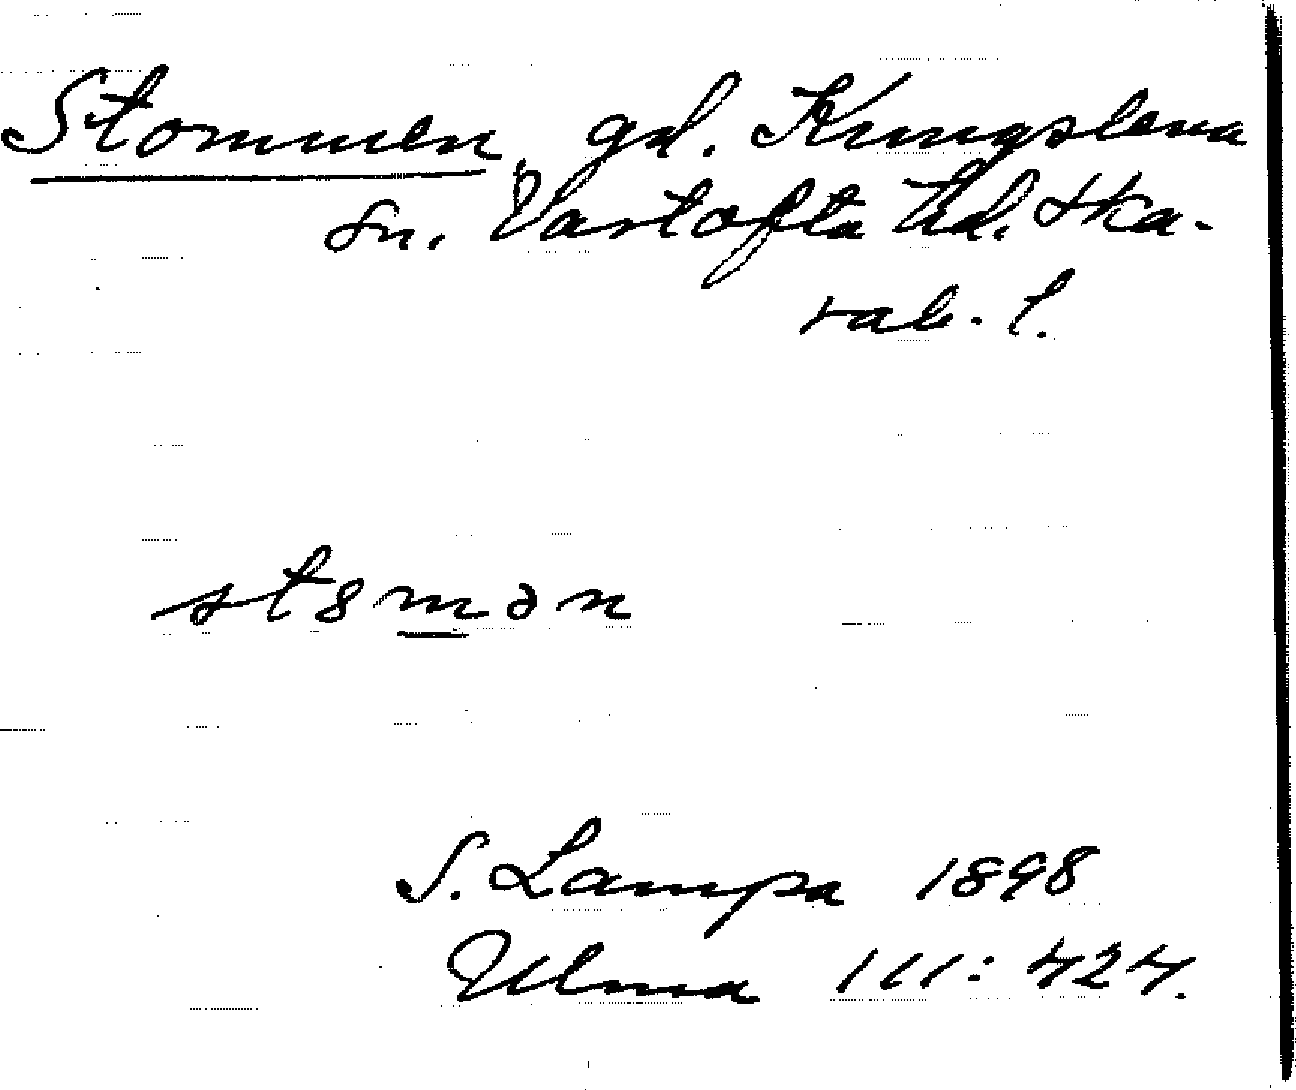 Stommen, gd. Kungslena
sn. Vartofta hd. Ska-
rab. l.
st8mən
S. Lampa 1898
Ulma 111: 424.